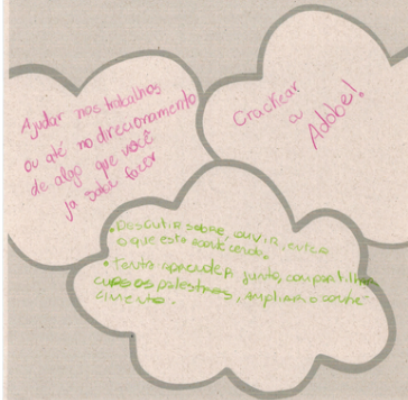 Ajudar nos trabalhos
ou até no direcionamento
de algo que você
já sabe fazer
Crackear
a
Adobe!
• Discutir sobre, ouvir,
o que está acontecendo.
• Tentar aprender junto, compartilhar
cursos palestras, ampliar o conhe-
cimento.